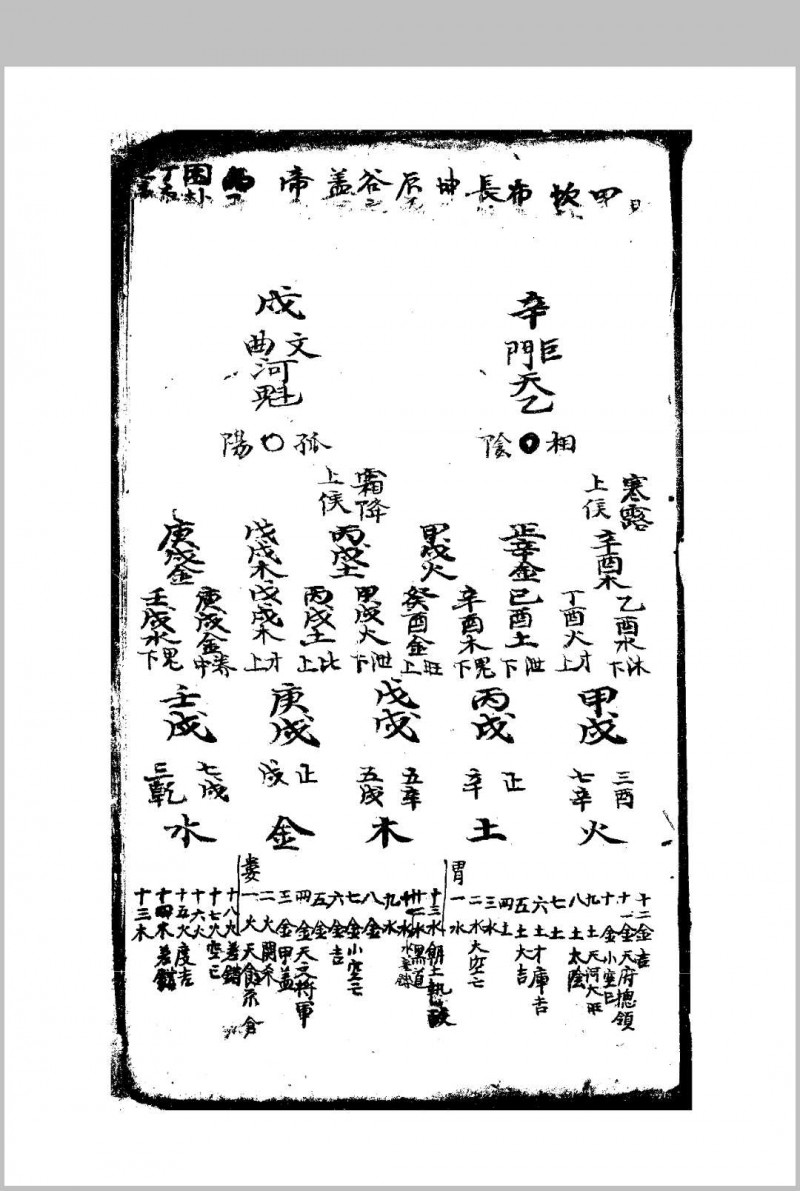 甲 坎 布 長 坤 辰 谷 盖 帝
辛
巨門
天乙
相 陰
戌
文曲
河魁
孤 陽
寒露上侯
霜降上侯
辛酉木
正辛金
甲戌火
丙戌土
戊戌木
庚戌金
乙酉水沐下
丁酉火才上
己酉土泄下
辛酉木鬼下
癸酉金旺上
甲戌火泄下
丙戌土比上
戊戌木才上
庚戌金中
壬戌水鬼下
甲戌
丙戌
戊戌
庚戌
壬戌
三酉
七辛
正
辛
五辛
五戌
正
戌
七戌
三乾
火
土
木
金
水
十二金吉
十一金天府總領
十金小空亡
九土天河大旺
八土太陰
七土
六土才庫吉
五土大吉
四土
三水
二水大空亡
胃一水
十三水
黑道
九水
八金
七金小空亡
六金吉
五金
四金天文將軍
三金甲盖
二火關杀
婁一火天倉
十八火差錯
十七火空亡
十六火
十五火度吉
十四木差錯
十三木